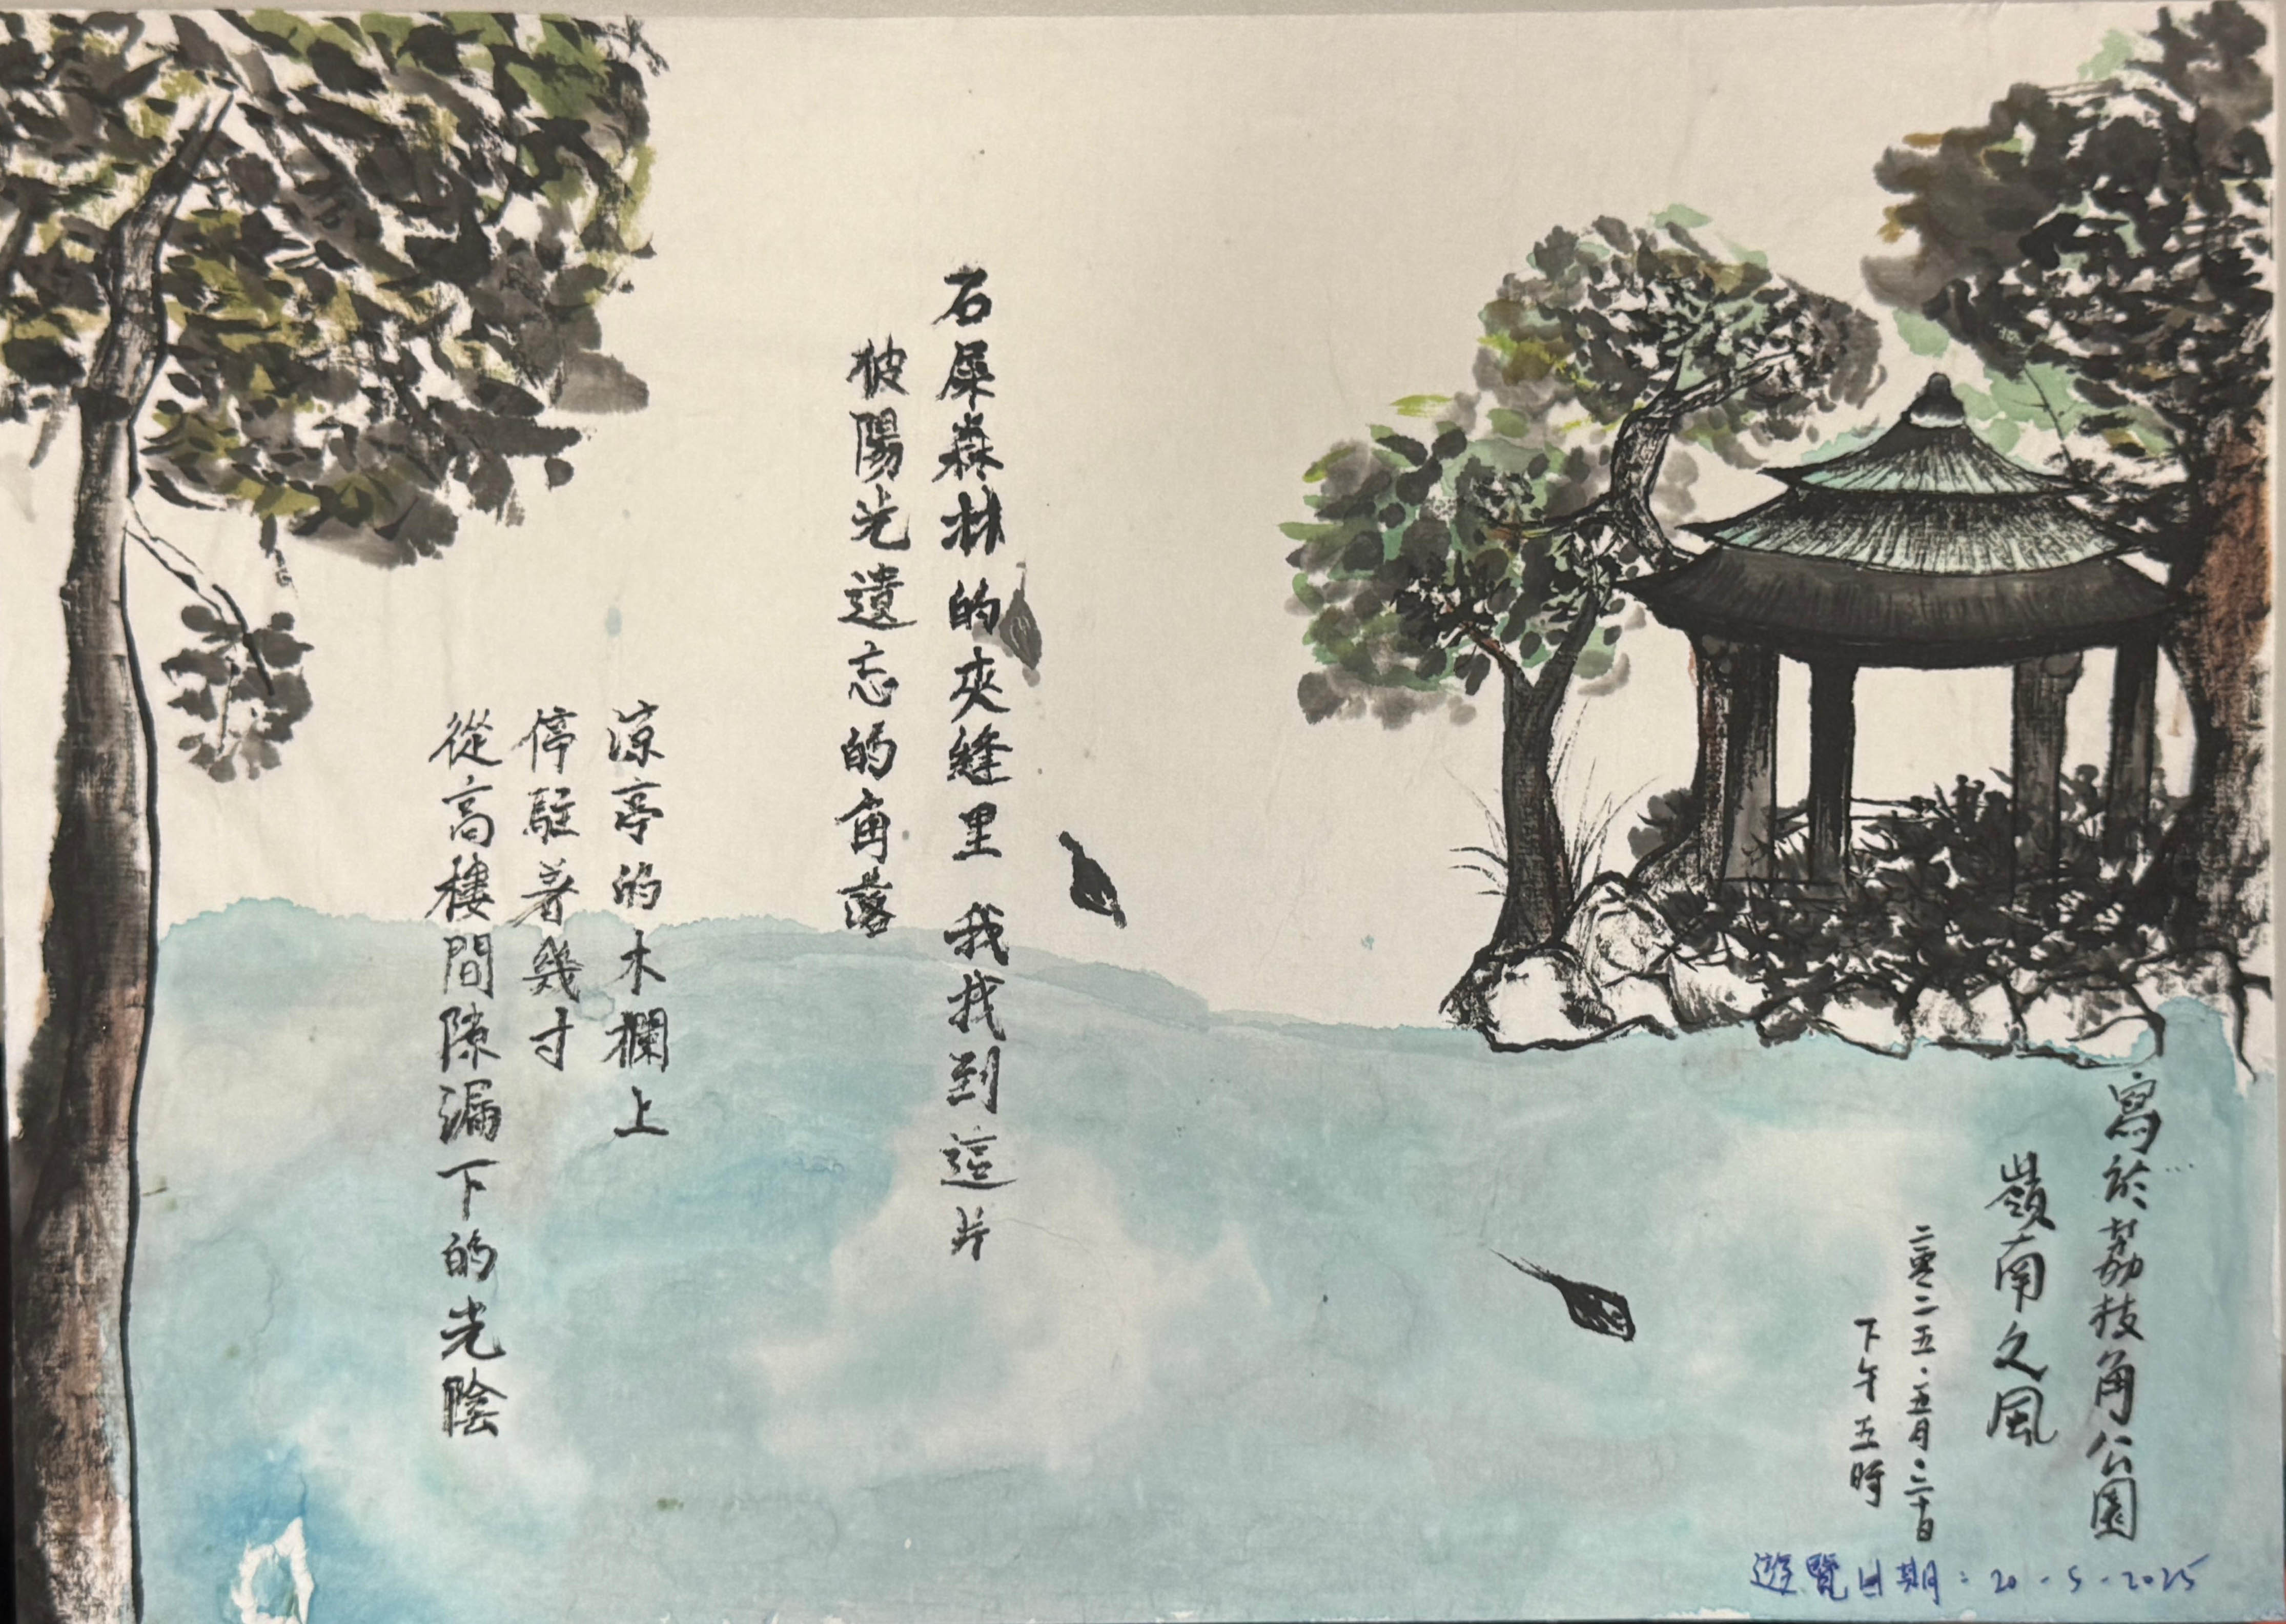 寫於荔枝角公園
嶺南之風
二零二五.五月.二十日
下午五時
石屎森林的夾縫里 我找到這片
被陽光遺忘的角落
涼亭的木欄上
停駐著幾寸
從高樓間隙漏下的光陰
遊覽日期：20-5-2025